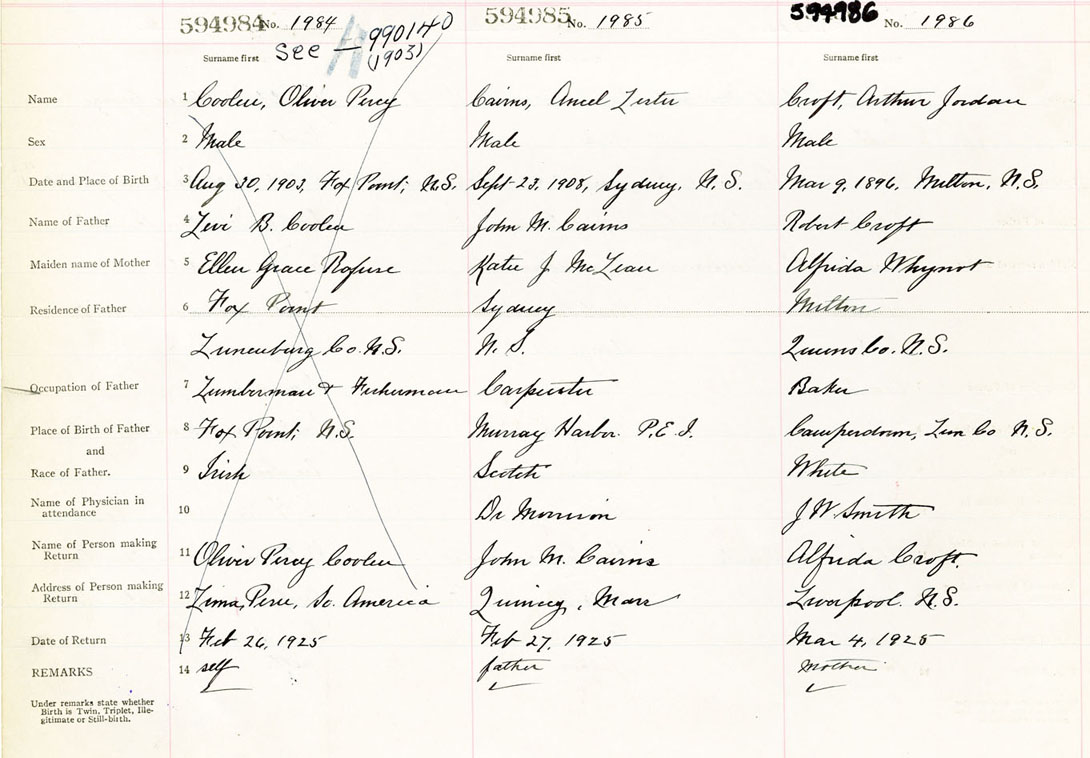 594984 No. 1984 594985 No. 1985 594986 No. 1986
See — 990140
(1903)
Surname first Surname first Surname first
Name 1 Coolen, Oliver Percy Cairns, Ancel Lester Croft, Arthur Jordan
Sex 2 Male Male Male
Date and Place of Birth 3 Aug 30, 1903, Fox Point, N.S. Sept 23, 1908, Sydney, N.S. Mar 9, 1896, Milton, N.S.
Name of Father 4 Levi B. Coolen John M. Cairns Robert Croft
Maiden name of Mother 5 Ellen Grace Rafuse Katie J McLean Alfrida Whynot
Residence of Father 6 Fox Point Sydney Milton
Lunenburg Co. N.S. N.S. Queens Co. N.S.
Occupation of Father 7 Lumberman & Fisherman Carpenter Baker
Place of Birth of Father 8 Fox Point, N.S. Murray Harbor. P.E.I. Camperdown, Lun Co N.S.
and
Race of Father. 9 Irish Scotch White
Name of Physician in
attendance 10 Dr Morrison J W Smith
Name of Person making
Return 11 Oliver Percy Coolen John M. Cairns Alfrida Croft.
Address of Person making
Return 12 Lima, Peru, So. America Quincy, Mass Liverpool. N.S.
Date of Return 13 Feb 26, 1925 Feb 27, 1925 Mar 4, 1925
REMARKS 14 self father mother
Under remarks state whether
Birth is Twin, Triplet, Ille-
gitimate or Still-birth.